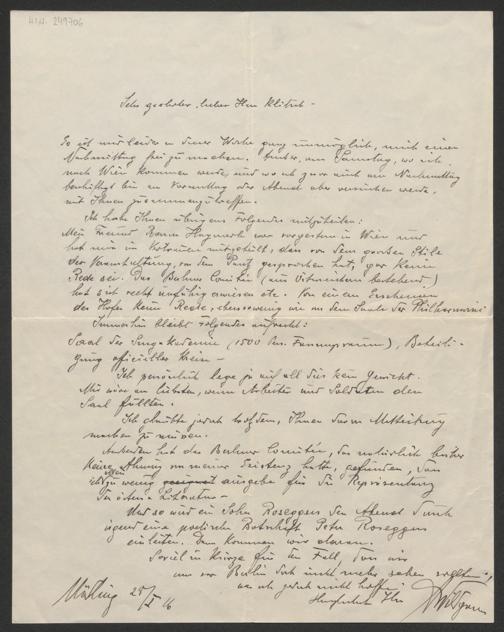 H.I.N. 249706
Sehr geehrter, lieber Herr Klitsch –
Es ist mir leider in dieser Woche ganz unmöglich, mich einen
Nachmittag frei zu machen. Außer am Samstag, wo ich
nach Wien kommen werde, und wo ich zwar auch am Nachmittag
beschäftigt bin am Vormittag oder Abend aber versuchen werde,
mit Ihnen zusammenzutreffen.
Ich habe Ihnen übrigens Folgendes mitzuteilen:
Mein Freund Baron war vorgestern in Wien und
hat mir mitgeteilt, dass von dem großen Stile
der Veranstaltung, von dem gesprochen hat, gar keine
Rede sei. Das Berliner Comitée (aus Österreichern bestehend)
hat sich recht unfähig erwiesen etc. Von einem Erscheinen
des Hofes keine Rede, ebensowenig wie an dem Saale der Philharmonie
Immerhin bleibt Folgendes aufrecht:
Saal der Sing-Akademie (1500 Per. Fassungsraum), Beteili-
gung officieller Kreise –
Ich persönlich lege ja auf all dies kein Gewicht.
Mir wäre am liebsten, wenn Arbeiter und Soldaten den
Saal füllten.
Ich glaubte jedoch trotzdem, Ihnen davon Mitteilung
machen zu müssen.
Außerdem hat das Berliner Comitée, das natürlich bisher
keine Ahnung von meiner Existenz hatte, gefunden, dass
zu wenig ausgebe für die Repräsentanz
der österr. Literatur –
Und so wird ein Sohn Roseggers den Abend durch
irgend eine poetische Botschaft Peter Roseggers
einleiten. Dann kommen wir daran.
Soviel in Kürze für den Fall, dass wir
uns vor Berlin doch nicht mehr sehen sollten,
was ich jedoch nicht hoffe.
Herzlichst Ihr
Mödling 25/I 16 Wildgans